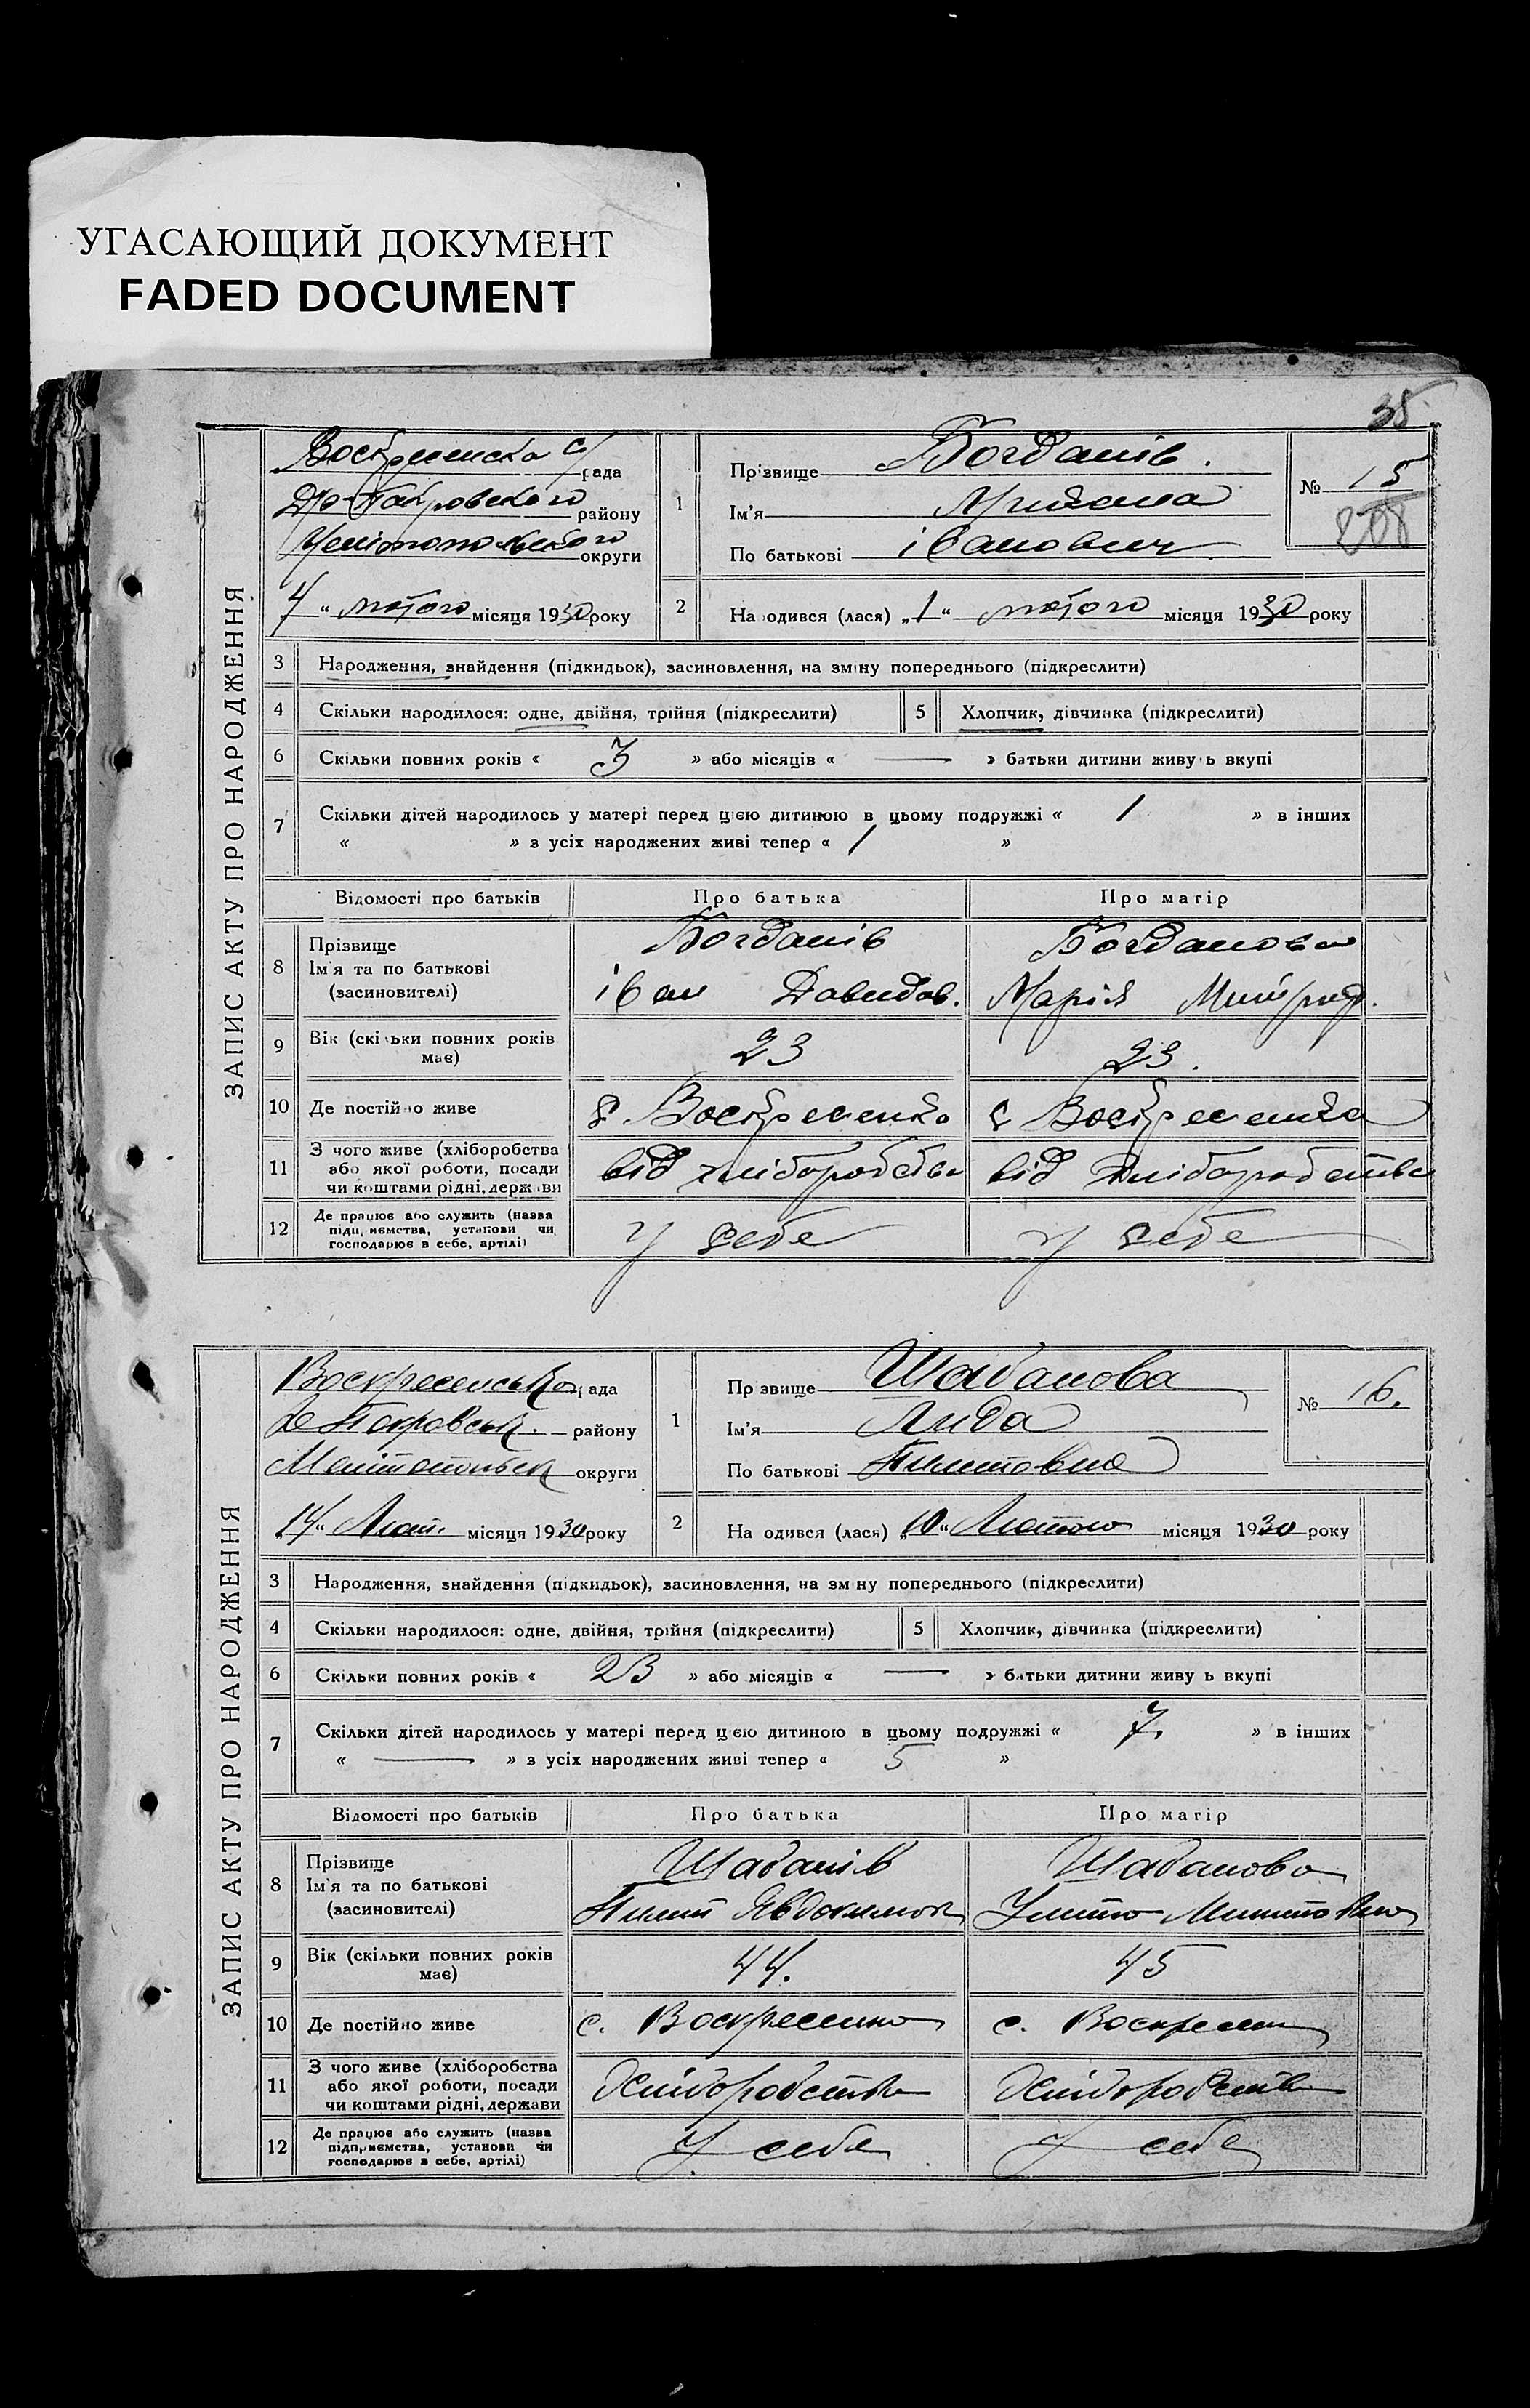 УГАСАЮЩИЙ ДОКУМЕНТ
FADED DOCUMENT
35
ЗАПИС АКТУ ПРО НАРОДЖЕННЯ
Воскресенска с/рада
району
округи
4 " лютого місяця 1930 року
1
Прізвище Богданів.
Ім'я
По батькові іванович
№ 15
208
2
Народився (лася) „1 " лютого місяця 1930 року
3 Народження, знайдення (підкидьок), засиновлення, на зміну попереднього (підкреслити)
4 Скільки народилося: одне, двійня, трійня (підкреслити)
5 Хлопчик, дівчинка (підкреслити)
6 Скільки повних років « 3 » або місяців « — » батьки дитини живуть вкупі
7 Скільки дітей народилось у матері перед цією дитиною в цьому подружжі « 1 » в інших
« » з усіх народжених живі тепер « 1 »
Відомості про батьків Про батька Про матір
8 Прізвище Ім'я та по батькові (засиновителі)
Богданів Богданова
іван Давидов. Марія
9 Вік (скільки повних років має) 23 23.
10 Де постійно живе с Воскресенка с Воскресенка
11 З чого живе (хліборобства або якої роботи, посади чи коштами рідні, держави
від хліборобства від хліборобства
12 Де працює або служить (назва підприємства, установи чи господарює в себе, артілі)
у себе у себе
ЗАПИС АКТУ ПРО НАРОДЖЕННЯ
Воскресенська рада
району
округи
14 " Лют. місяця 1930 року
1
Прізвище Шабанова
Ім'я Лида
По батькові Пилиповна
№ 16.
2
Народився (лася) „10 " Лютого місяця 1930 року
3 Народження, знайдення (підкидьок), засиновлення, на зміну попереднього (підкреслити)
4 Скільки народилося: одне, двійня, трійня (підкреслити)
5 Хлопчик, дівчинка (підкреслити)
6 Скільки повних років « 23 » або місяців « — » батьки дитини живуть вкупі
7 Скільки дітей народилось у матері перед цією дитиною в цьому подружжі « 7. » в інших
« — » з усіх народжених живі тепер « 5 »
Відомості про батьків Про батька Про матір
8 Прізвище Ім'я та по батькові (засиновителі)
Шабанів Шабанова
Пилип Явдокимов
9 Вік (скільки повних років має) 44. 45
10 Де постійно живе с. Воскресенка с. Воскресен
11 З чого живе (хліборобства або якої роботи, посади чи коштами рідні, держави
Хліборобства Хліборобства
12 Де працює або служить (назва підприємства, установи чи господарює в себе, артілі)
У себе У себе